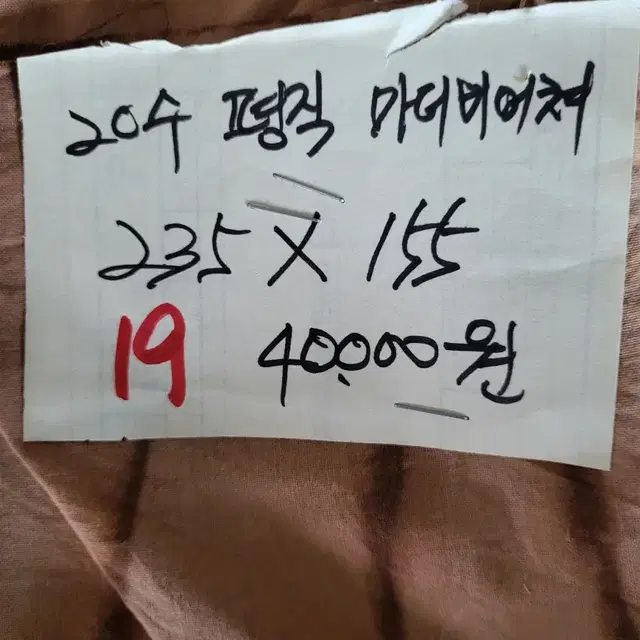 20수 평직 마더비어쳐
235 X 155
19 40,000원